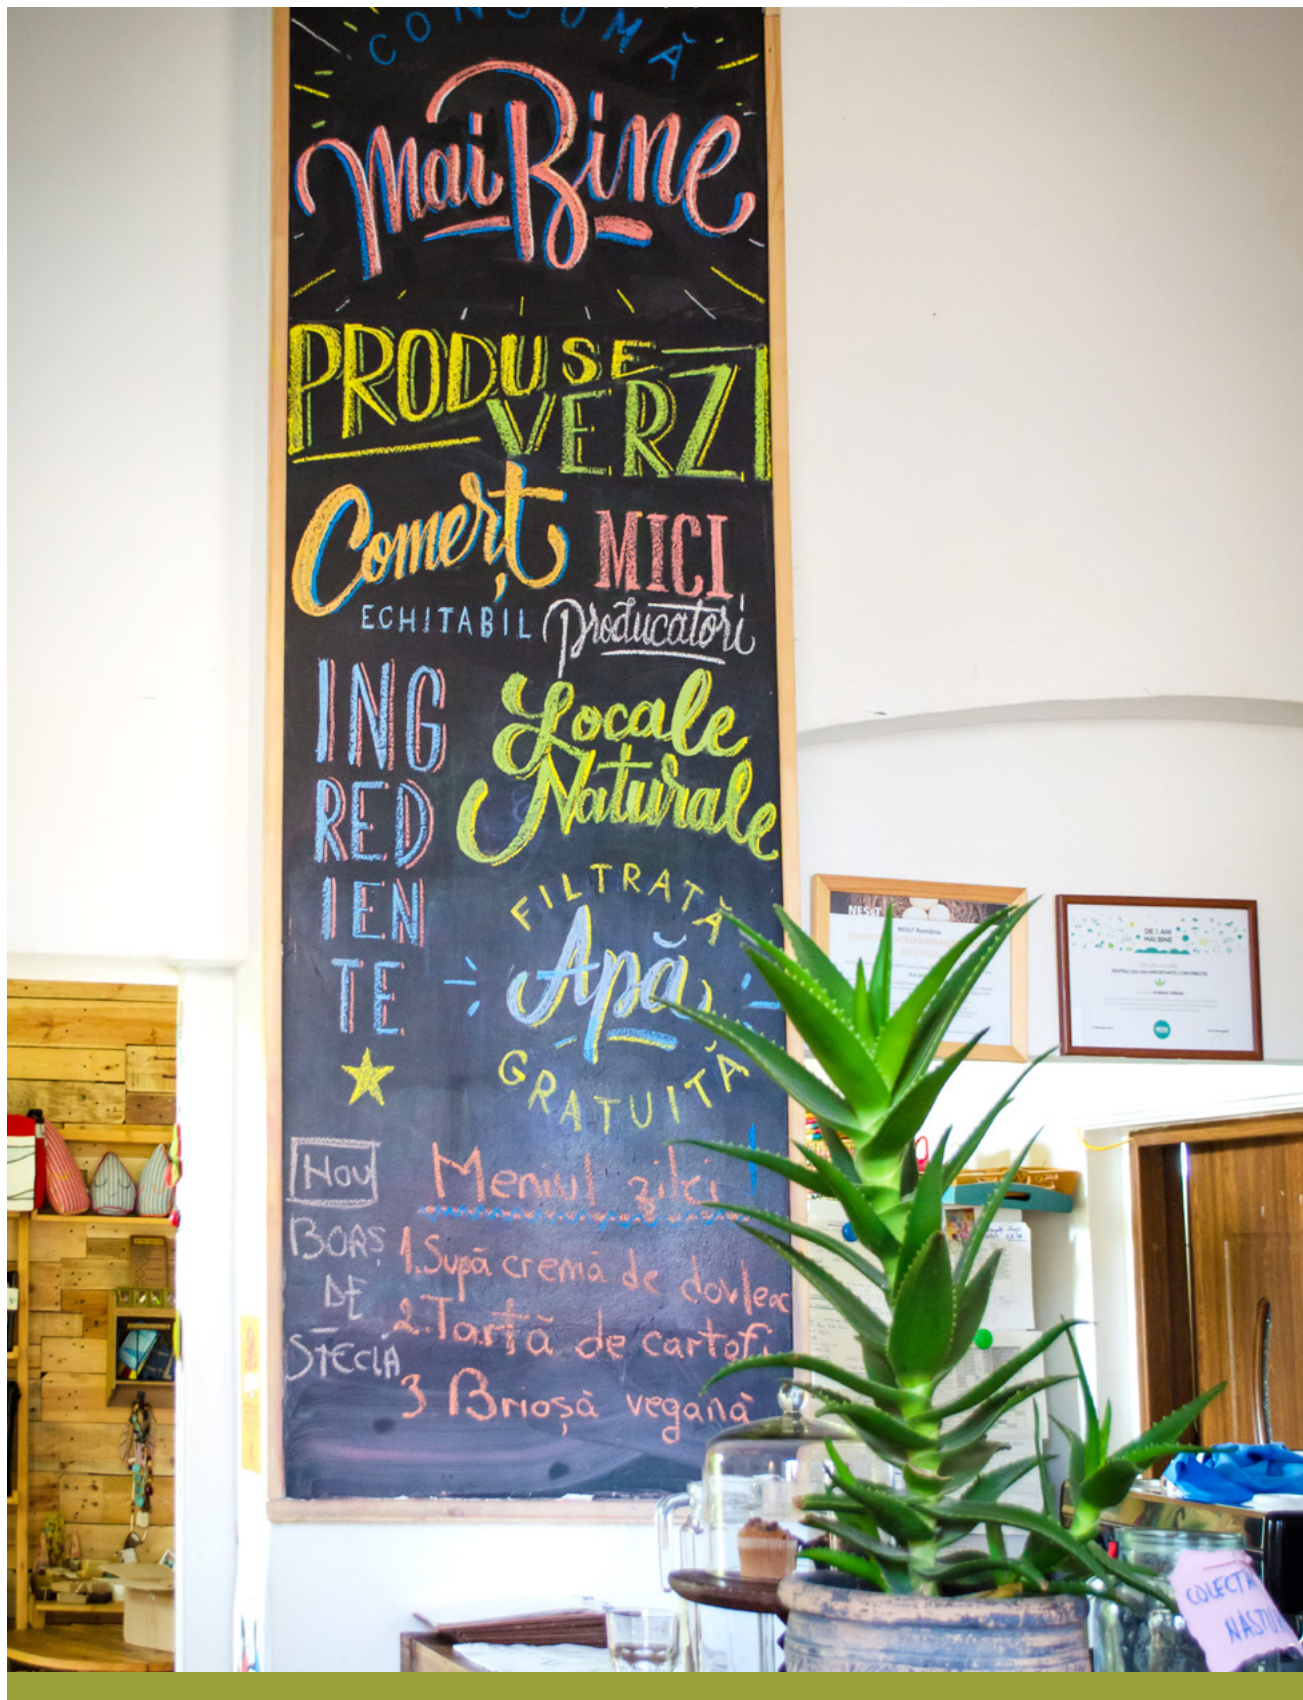 CONSUMĂ
Mai Bine
PRODUSE
VERZI
Comerț
ECHITABIL
MICI
Producatori
ING
RED
IEN
TE
Locale
Naturale
FILTRATĂ
Apă
GRATUITĂ
Nou
BORȘ
DE
STECLĂ
Meniul zilei
1.Supă cremă de dovleac
2.Tartă de cartofi
3 Brioșă vegană
NESsT
NESsT România
DE 5 ANI
MAI BINE
COLECTA
NASTU